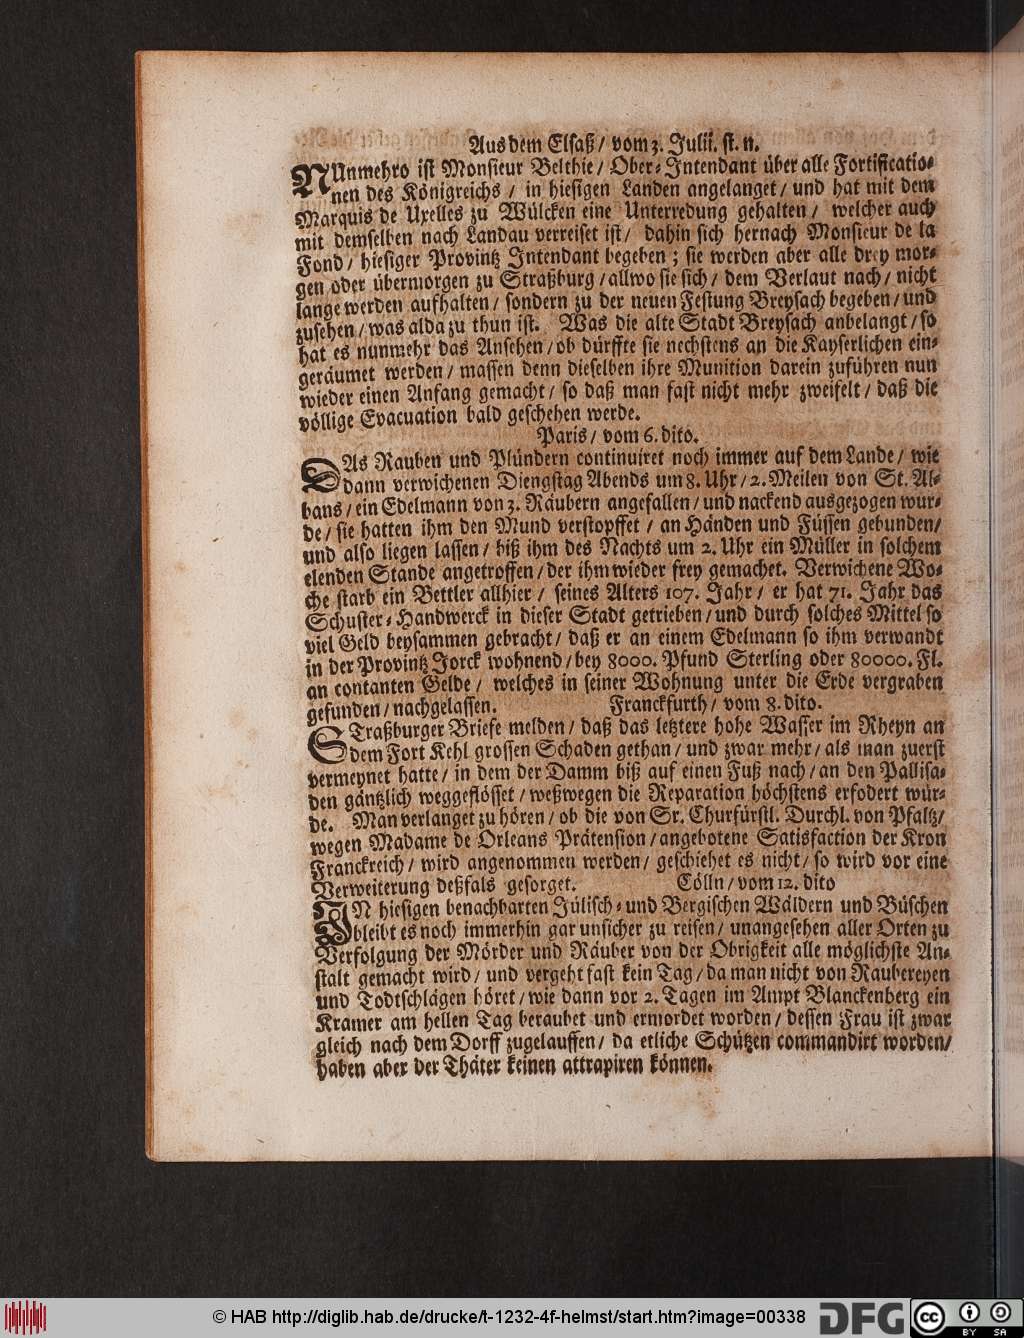 Aus dem Elsaß / vom 3. Julii. st. n.
NUnmehro ist Monsieur Belthie / Ober-Intendant über alle Fortificatio-
nen des Königreichs / in hiesigen Landen angelanget / und hat mit dem
Marquis de Uxelles zu Wülcken eine Unterredung gehalten / welcher auch
mit demselben nach Landau verreiset ist / dahin sich hernach Monsieur de la
Fond / hiesiger Provintz Intendant begeben ; sie werden aber alle drey mor-
gen oder übermorgen zu Straßburg / allwo sie sich / dem Verlaut nach / nicht
lange werden aufhalten / sondern zu der neuen Festung Breysach begeben / und
zusehen / was alda zu thun ist. Was die alte Stadt Breysach anbelangt / so
hat es nunmehr das Ansehen / ob dürffte sie nechstens an die Kayserlichen ein-
geräumet werden / massen denn dieselben ihre Munition darein zuführen nun
wieder einen Anfang gemacht / so daß man fast nicht mehr zweifelt / daß die
völlige Evacuation bald geschehen werde.
Paris / vom 6. dito.
DAs Rauben und Plündern continuiret noch immer auf dem Lande / wie
dann verwichenen Diengstag Abends um 8. Uhr / 2. Meilen von St. Al-
bans / ein Edelmann von 3. Räubern angefallen / und nackend ausgezogen wur-
de / sie hatten ihm den Mund verstopffet / an Händen und Füssen gebunden /
und also liegen lassen / biß ihm des Nachts um 2. Uhr ein Müller in solchem
elenden Stande angetroffen / der ihm wieder frey gemachet. Verwichene Wo-
che starb ein Bettler allhier / seines Alters 107. Jahr / er hat 71. Jahr das
Schuster-Handwerck in dieser Stadt getrieben / und durch solches Mittel so
viel Geld beysammen gebracht / daß er an einem Edelmann so ihm verwandt
in der Provintz Jorck wohnend / bey 8000. Pfund Sterling oder 80000. Fl.
an contanten Gelde / welches in seiner Wohnung unter die Erde vergraben
gefunden / nachgelassen. Franckfurth / vom 8. dito.
STraßburger Briefe melden / daß das letztere hohe Wasser im Rheyn an
dem Fort Kehl grossen Schaden gethan / und zwar mehr / als man zuerst
vermeynet hatte / in dem der Damm biß auf einen Fuß nach / an den Pallisa-
den gäntzlich weggeflösset / weßwegen die Reparation höchstens erfodert wür-
de. Man verlanget zu hören / ob die von Sr. Churfürstl. Durchl. von Pfaltz /
wegen Madame de Orleans Prätension / angebotene Satisfaction der Kron
Franckreich / wird angenommen werden / geschiehet es nicht / so wird vor eine
Verweiterung deßfals gesorget. Cölln / vom 12. dito
IN hiesigen benachbarten Jülisch- und Bergischen Wäldern und Büschen
bleibt es noch immerhin gar unsicher zu reisen / unangesehen aller Orten zu
Verfolgung der Mörder und Räuber von der Obrigkeit alle möglichste An-
stalt gemacht wird / und vergeht fast kein Tag / da man nicht von Raubereyen
und Todtschlägen höret / wie dann vor 2. Tagen im Ampt Blanckenberg ein
Kramer am hellen Tag beraubet und ermordet worden / dessen Frau ist zwar
gleich nach dem Dorff zugelauffen / da etliche Schützen commandirt worden /
haben aber der Thäter keinen attrapiren können.
© HAB http://diglib.hab.de/drucke/t-1232-4f-helmst/start.htm?image=00338
DFG
cc BY SA